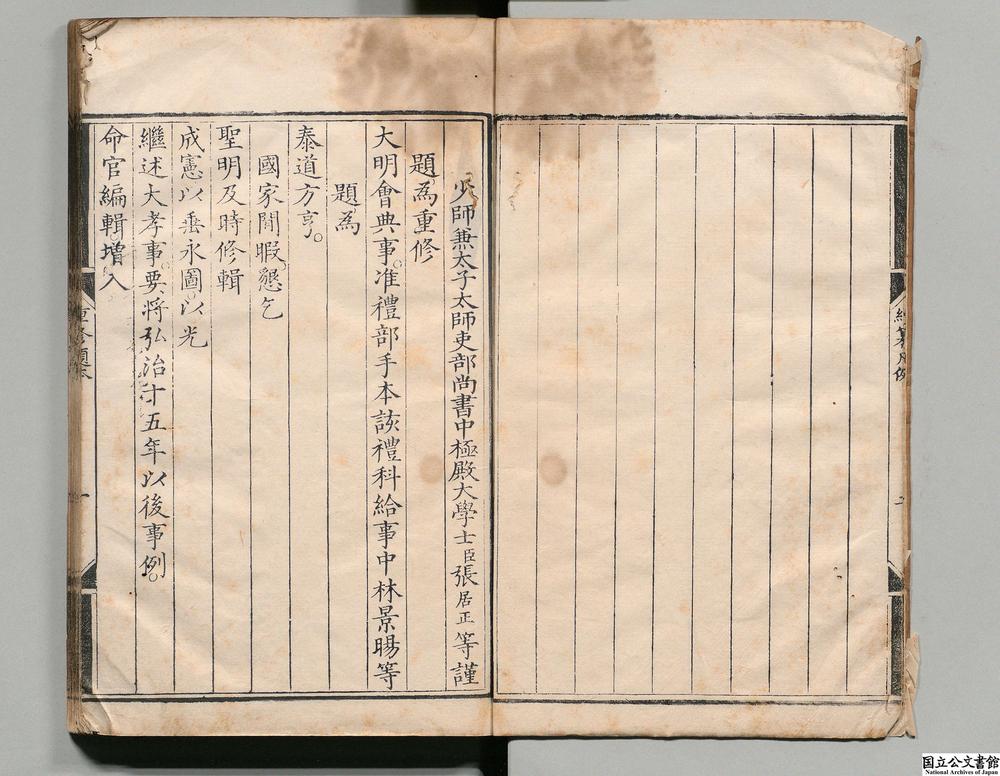 少師兼太子太師吏部尚書中極殿大學士臣張居正等謹
題為重修
大明會典事。准禮部手本該禮科給事中林景暘等
題為
泰道方亨。
國家閒暇。懇乞
聖明及時修輯
成憲以垂永圖。以光
繼述大孝事。要將弘治十五年以後事例。
命官編輯增入
重修題本
一
纂凡例
国立公文書館
National Archives of Japan